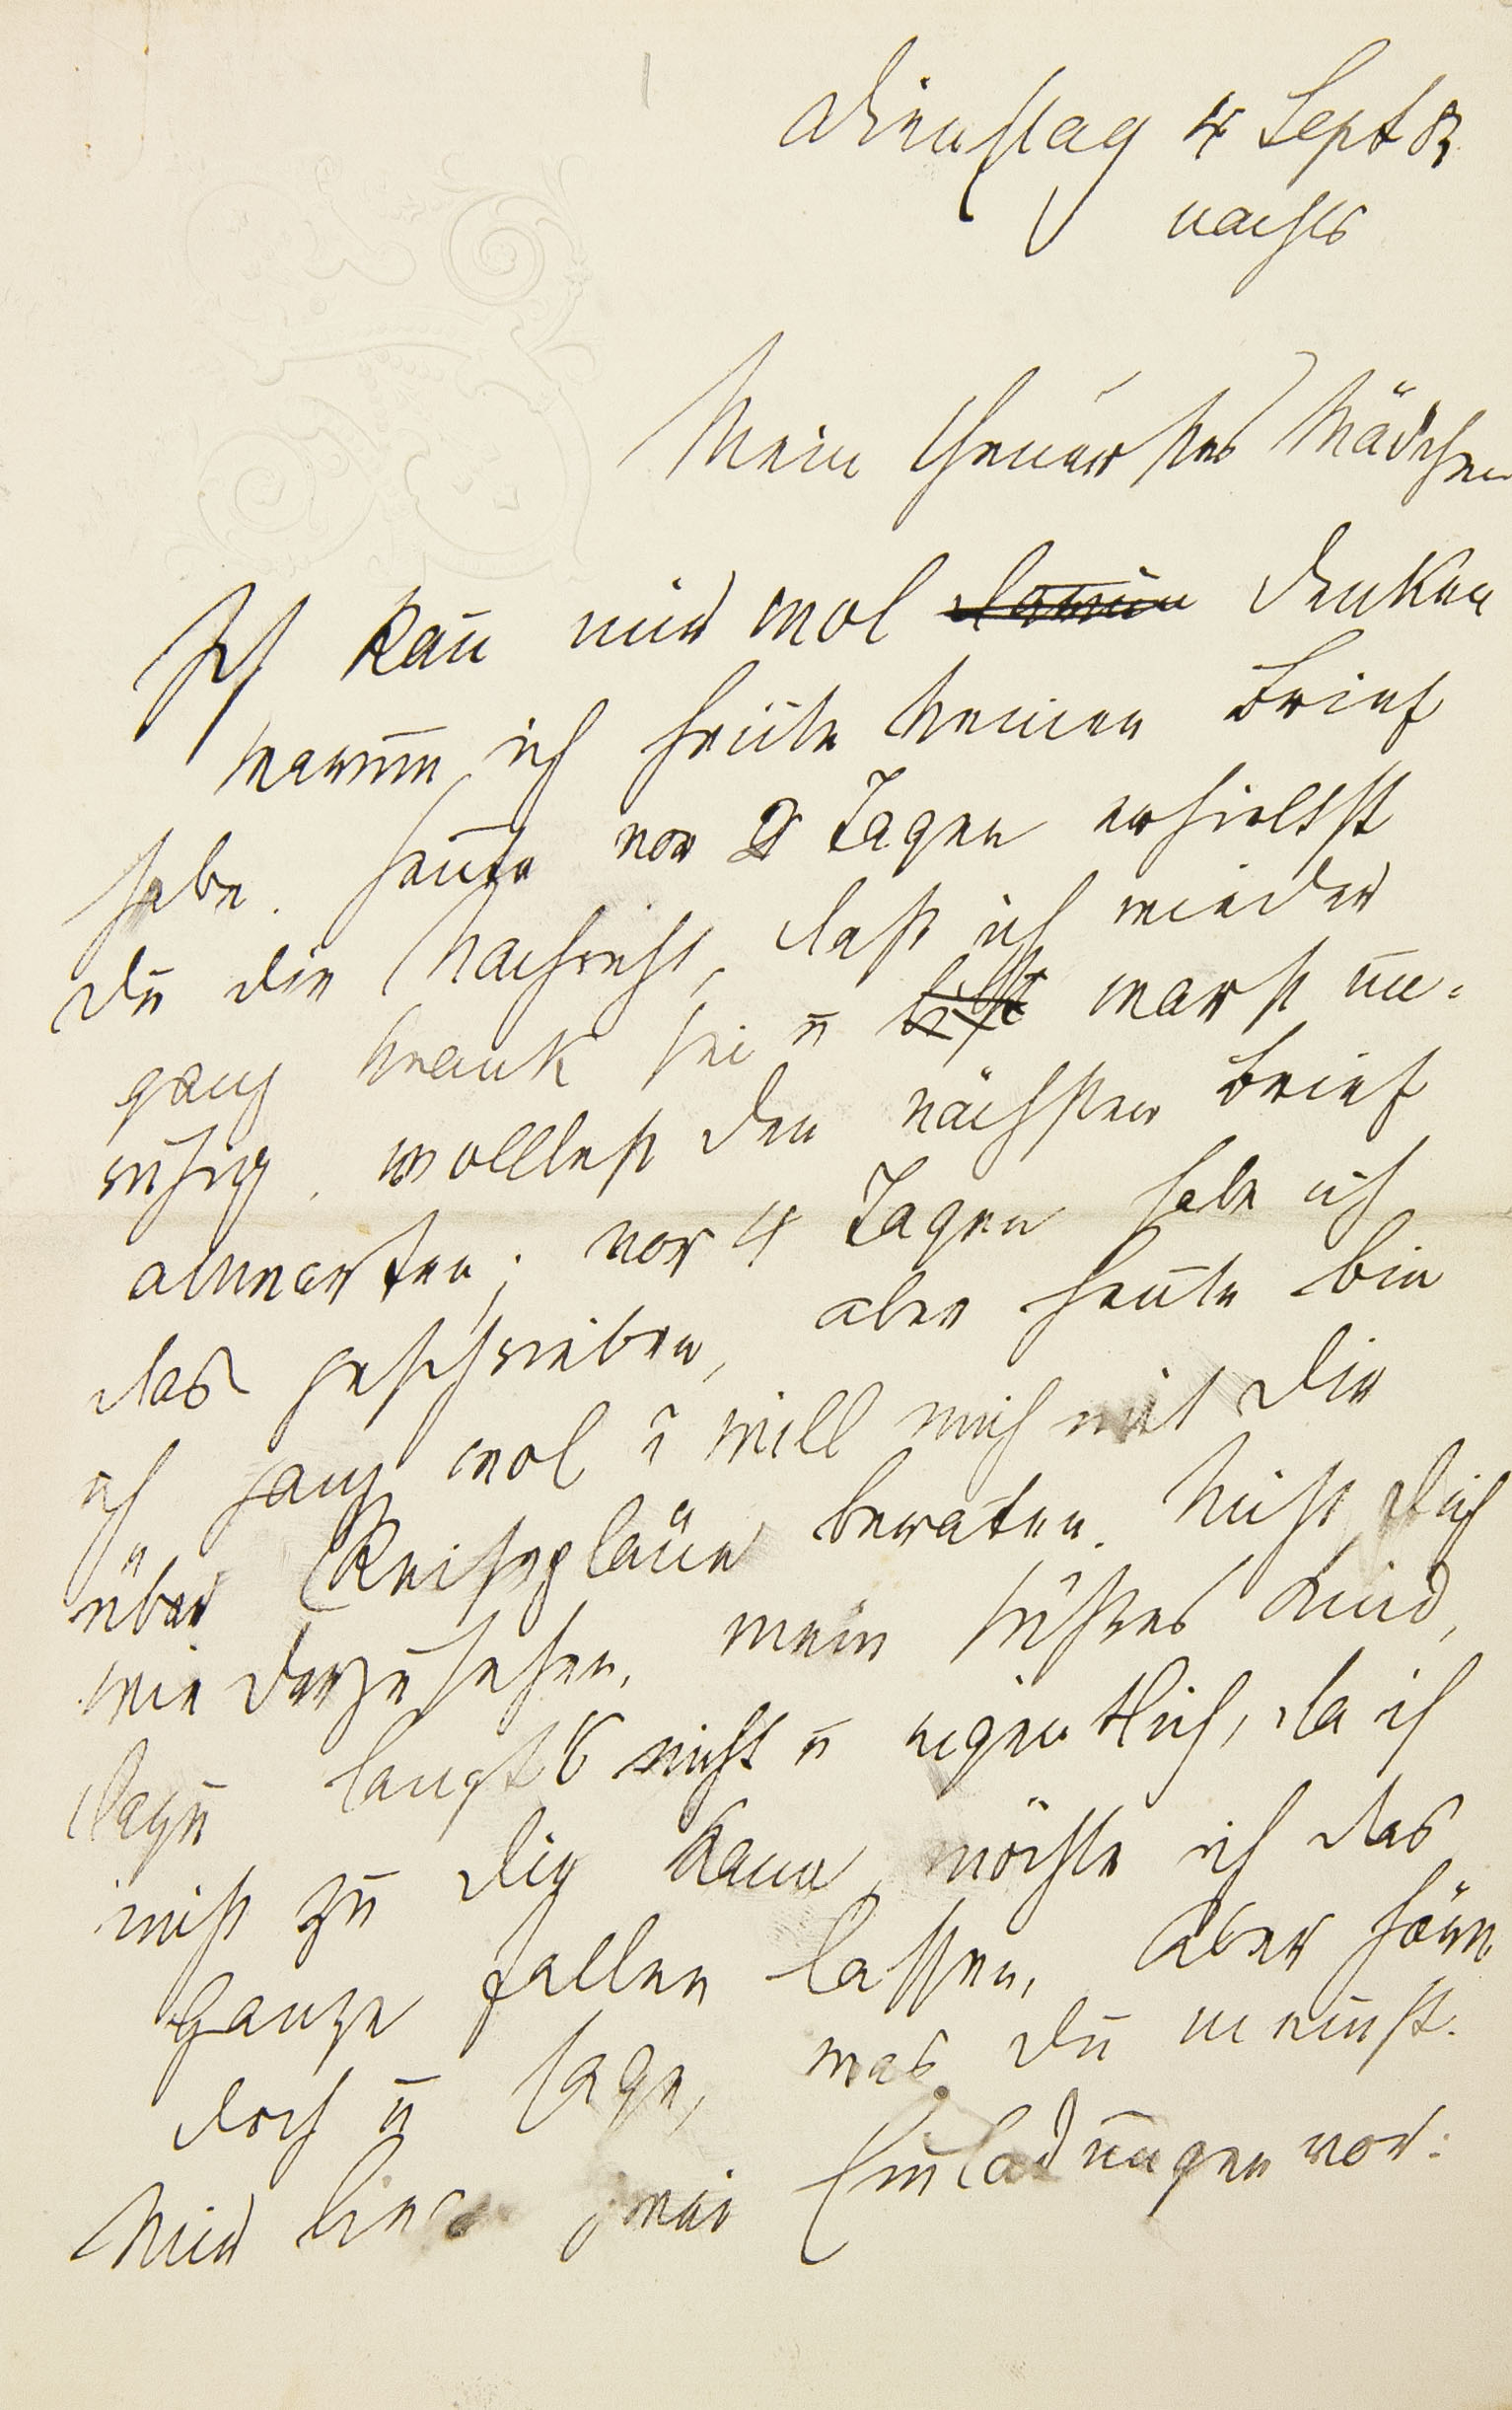 Dienstag 4 Sept 83
nachts
Mein theuerstes Mädchen
Ich kan̄ mir wol denken
warum ich heute keinen Brief
habe. Heute vor 2 Tagen erhieltst
Du die Nachricht, daß ich wieder
ganz krank sei u bist warst un-
ruhig, wolltest den nächsten Brief
abwarten; vor 4 Tagen habe ich
das geschrieben, aber heute bin
ich ganz wol u will mich mit Dir
über Reisepläne beraten. Nicht Dich
wiederzusehen, mein süßes Kind,
dazu langt's nicht u eigentlich, da ich
nicht zu Dir kann, möchte ich das
Ganze fallen lassen. Aber höre
doch u sage, was Du meinst.
Mir zwei Einladungen vor: